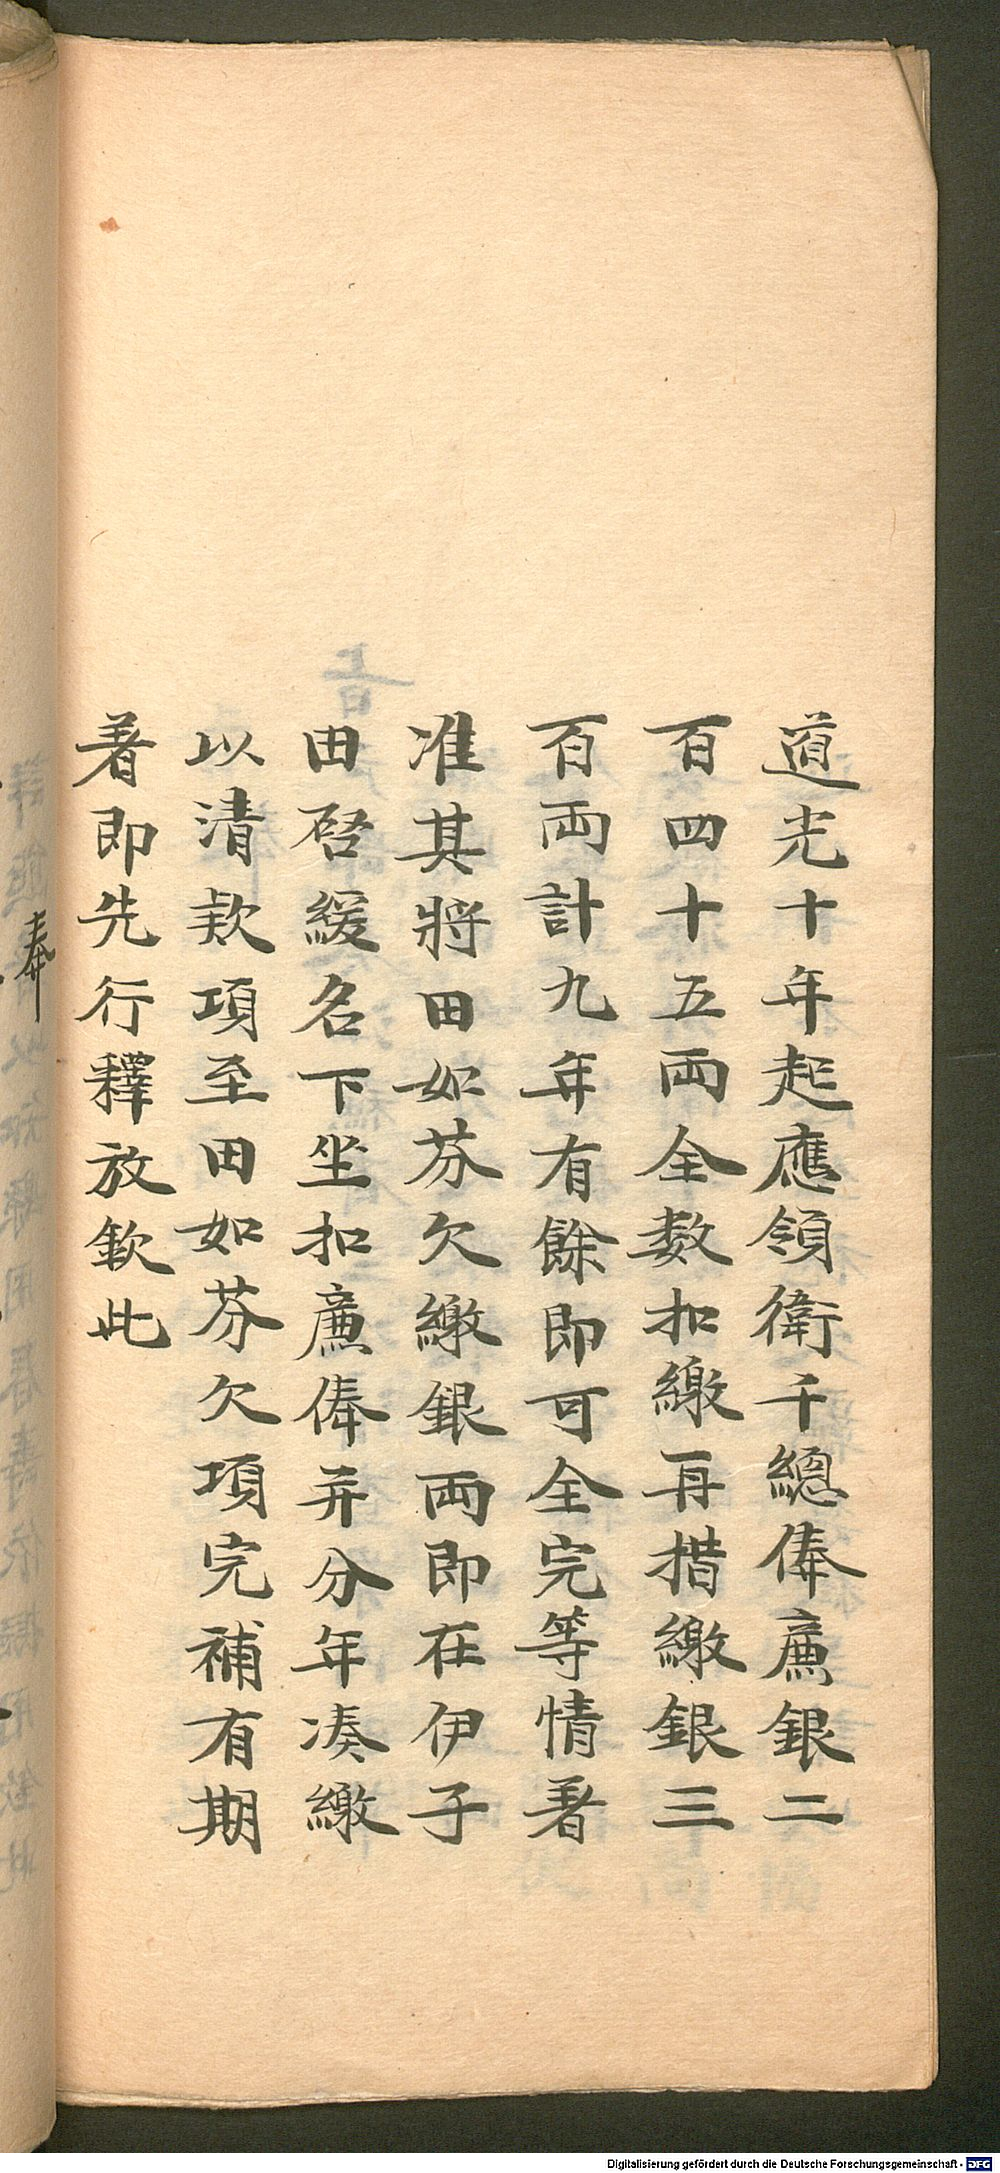 道光十年起應領衛千總俸廉銀二
百四十五兩全數扣繳再措繳銀三
百兩計九年有餘即可全完等情著
准其將田如芬欠繳銀兩即在伊子
田啓緩名下坐扣廉俸并分年湊繳
以清款項至田如芬欠項完補有期
著即先行釋放欽此
奉
Digitalisierung gefördert durch die Deutsche Forschungsgemeinschaft - DFG